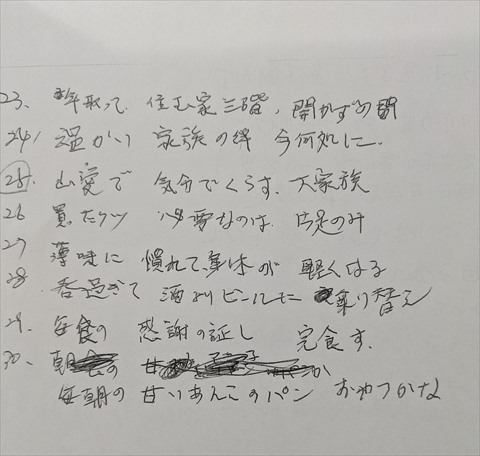 23、 年取って 住む家三階、開かずの間
24、 温かい 家族の絆 今何処に
25. 山愛で 気分でくらす、大家族
26 買ったクツ 必要なのは 片足のみ
27 薄味に 慣れて、身体が 軽くなる
28. 呑過ぎて 酒よりビールモニ 乗り替え
29. 毎食の 感謝の証し 完食す.
30. 朝食の 甘 か
毎朝の 甘いあんこのパン おやつかな